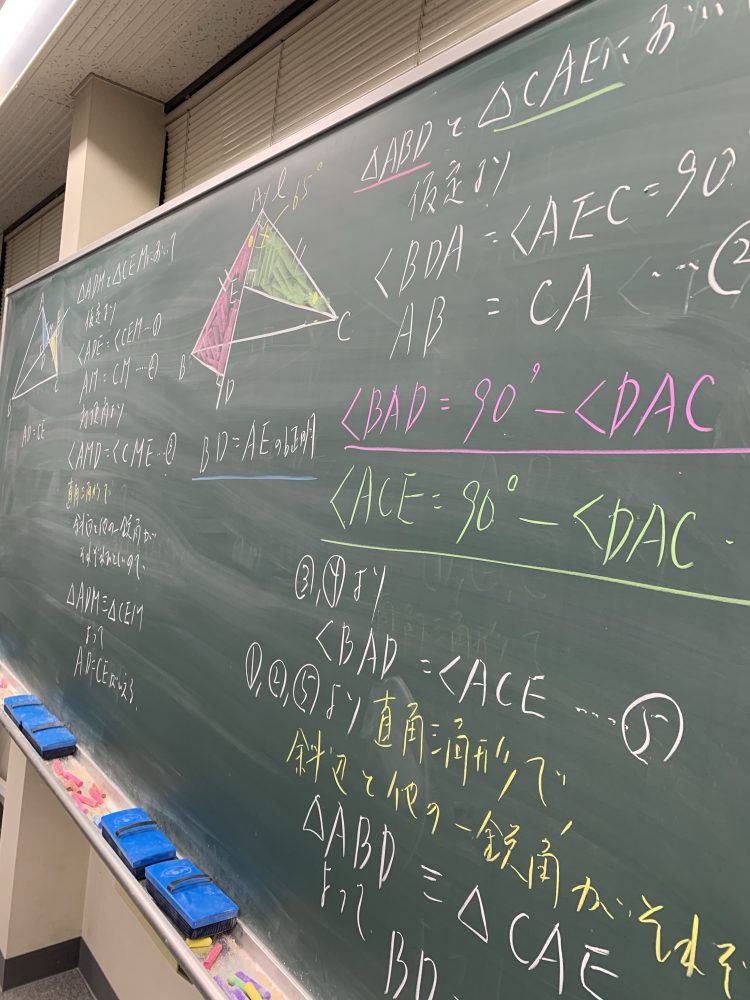 △ADMと△CEMにおいて
仮定より
<ADE=<CEM…①
AM=CM…②
対頂角より
<AMD=<CME…③
直角三角形で
斜辺と他の一鋭角が
それぞれ等しいので
△ADM≡△CEM
よって
AD=CE
AD=CE
A
l
65°
E
B
C
D
BD=AEの証明
△ABDと△CAEにおい
仮定より
<BDA=<AEC=90
AB=CA…②
<BAD=90°-<DAC
<ACE=90°-<DAC
③,④より
<BAD=<ACE…⑤
①,②,⑤より直角三角形で
斜辺と他の一鋭角がそれぞ
△ABD≡△CAE
よって
BD